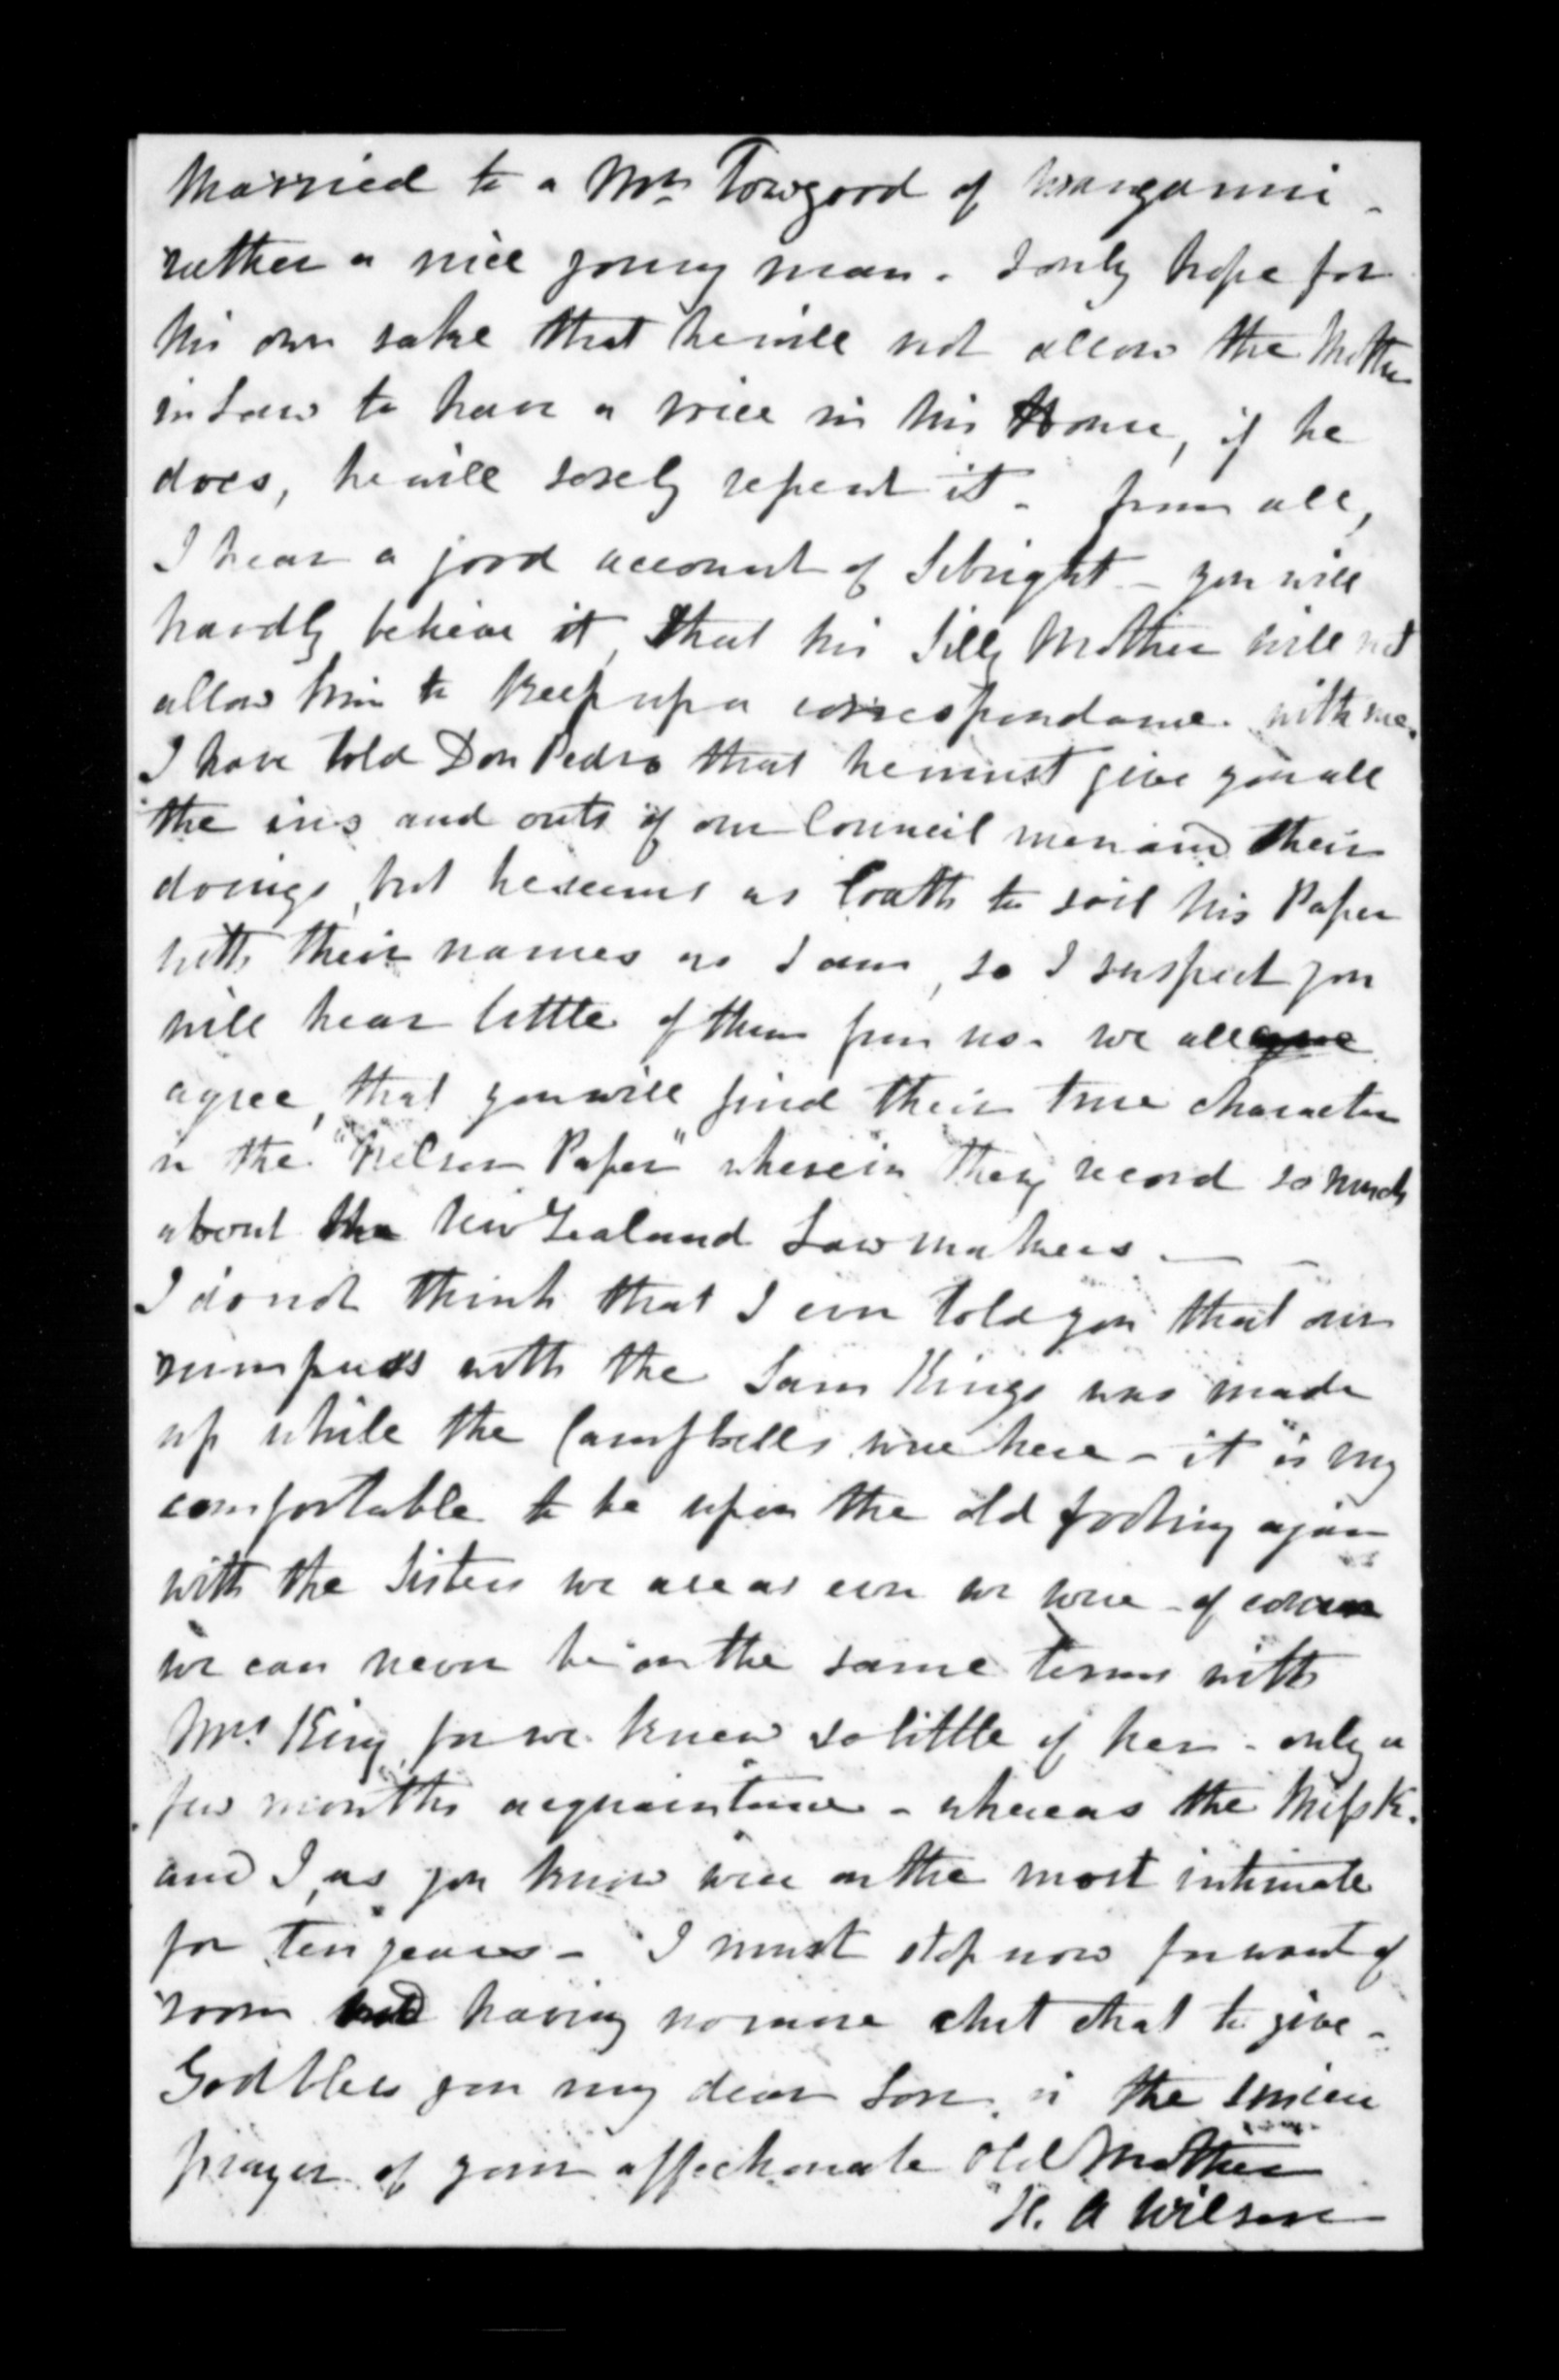 Married to a Mr. Towgood of Wanganui -
rather a nice young man - I only hope for
his own sake that he will not allow the Mother
in Law to have a voice in his House, if he
does, he will sorely repent it - from all,
I hear a good account of Sebright - you will
hardly believe it, that his Silly Mother will not
allow him to keep up a correspondance with me.
I have told Don Pedro that he must give you all
the ins and outs of our Council men and their
doings, but he seems as loath to soil his Paper
with their names as I am, so I suspect you
will hear little of them from us - we all
agree, that you will find their true character
in the "Nelson Paper" wherein they record so much
about the New Zealand Law makers -
I do not think that I ever told you that our
rumpuss with the Sam Kings was made
up while the Campbells were here - it is my
comfortable to be upon the old footing again
with the Sisters we are as ever we were - of course
we can never be on the same terms with
Mrs. King, for we knew so little of her - only a
few months acquaintance - whereas the Miss K.
and I, as you know were on the most intimate
for ten years - I must stop now for want of
room and having no more chit chat to give -
God bless you my dear Son, is the sincere
prayer of your affectionate old Mother
H. A Wilson